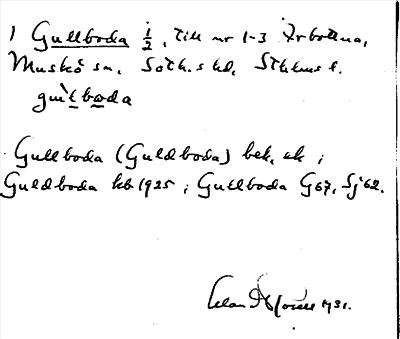 1 Gullboda ½, till nr 1-3 Arbottna,
Muskö sn, Soth.s hd, Sthlms l.
gul`boda
Gullboda (Guldboda) bek. uk;
Guldboda kb 1925; Gullboda G67, Sj 62.
1931.